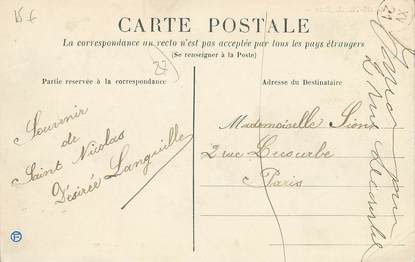 15 €
XV
21
CARTE POSTALE
La correspondance au recto n'est pas acceptée par tous les pays étrangers
(Se renseigner à la Poste)
22
Partie réservée à la correspondance
Adresse du Destinataire
Souvenir
de
Saint Nicolas
Désirée Languille
Mademoiselle Sion
2 rue Lecourbe
Paris
2 rue Lecourbe